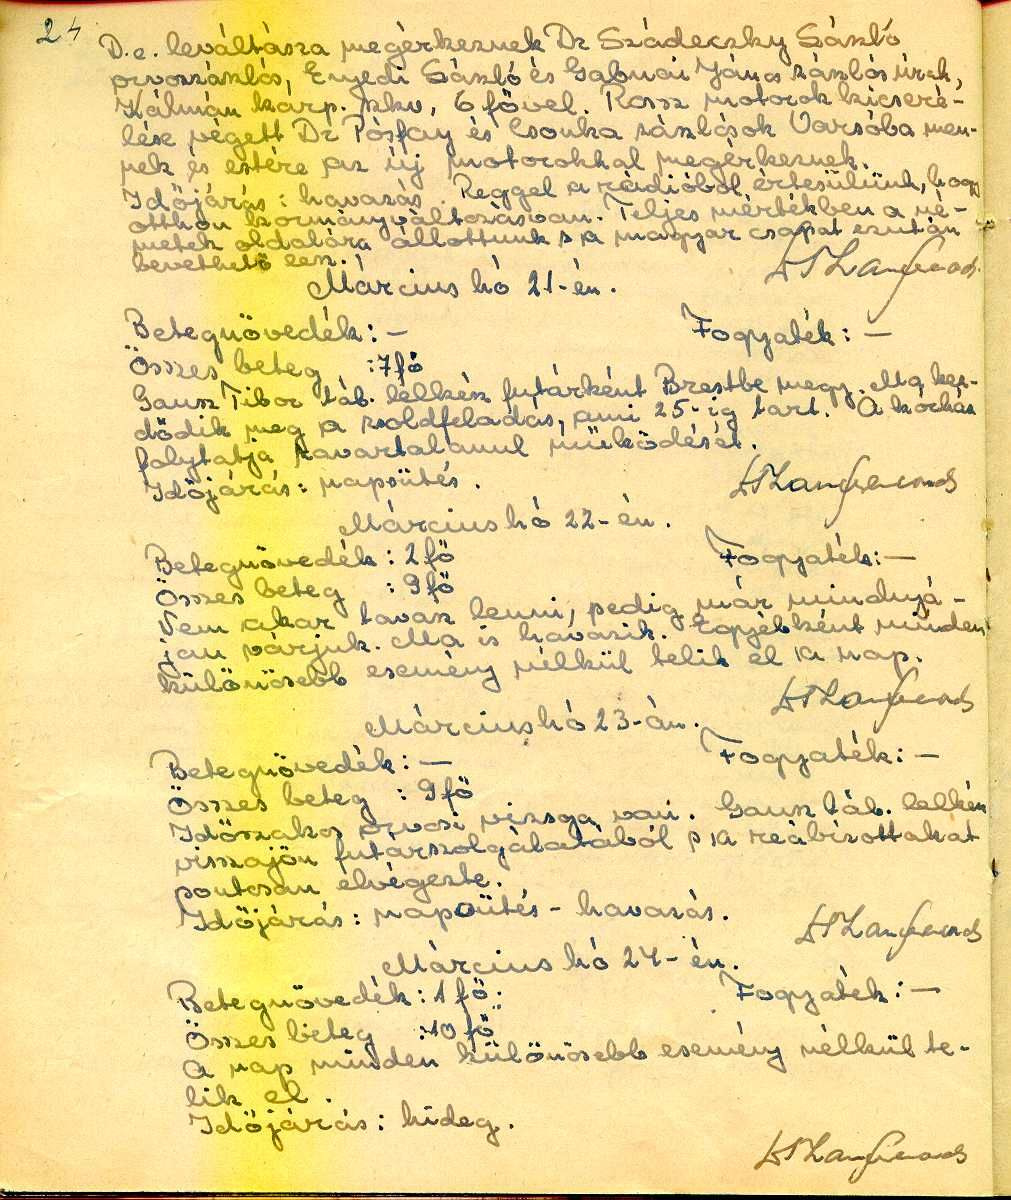 24
D.e. leváltásra megérkeznek Dr Szádeczky László
orvoszászlós, Enyedi László és Gabnai János zászlós úrak,
Kálmán karp. szkv, 6 fővel. Rossz motorok kicseré-
lése végett Dr Pósfay és Csonka zászlósok Varsóba men-
nek és estére az új motorokkal megérkeznek.
Időjárás: havazás. Reggel a rádióból értesülünk, hogy
otthon kormányváltozás van. Teljes mértékben a né-
metek oldalára állottunk s a magyar csapat ezután
bevethető lesz.
Március hó 21-én.
Betegnövedék: — Fogyaték: —
Összes beteg : 7 fő
Gausz Tibor táb. lelkész futárként Brestbe megy. Ma kez-
dődik meg a zsoldfeladás, ami 25-ig tart. A kórház
folytatja zavartalanul működését.
Időjárás: napsütés.
Március hó 22-én.
Betegnövedék: 2 fő Fogyaték: —
Összes beteg : 9 fő
Nem akar tavasz lenni, pedig már mindnyá-
jan várjuk. Ma is havazik. Egyébként minden
különösebb esemény nélkül telik el a nap.
Március hó 23-án.
Betegnövedék: — Fogyaték: —
Összes beteg : 9 fő
Időszakos orvosi vizsga van. Gausz táb. lelkész
visszajön futárszolgálatából s a reábízottakat
pontosan elvégezte.
Időjárás: napsütés - havazás.
Március hó 24-én.
Betegnövedék: 1 fő. Fogyaték: —
Összes beteg : 10 fő
A nap minden különösebb esemény nélkül te-
lik el.
Időjárás: hideg.